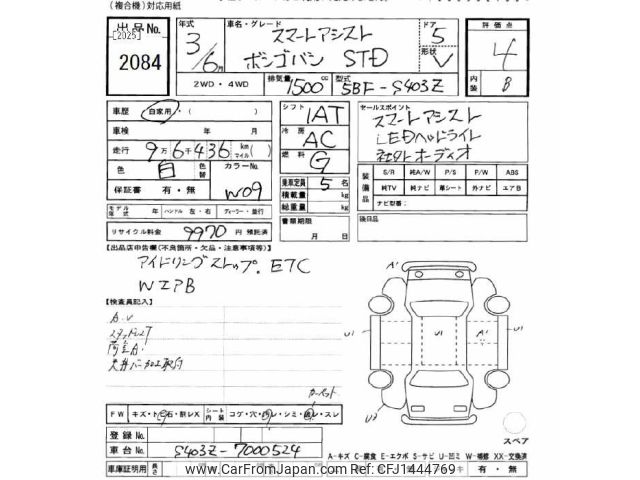 (複合機)対応用紙
出品No. [2025] 2084
年式 3/6月
車名・グレード スマートアシスト
ボンゴバン STD
ドア 5
形状 V
評価点 4
内装 B
2WD・4WD
排気量 1500 cc
型式 5BF-S403Z
車歴 自家用・( )
車検 年 月
走行 9万6千436 km(マイル)
色 白 色替 カラーNo. W09
保証書 有・無
モデル年式 年 ハンドル 左・右 ディーラー・並行
リサイクル料金 9970 円 預託済
シフト IAT
冷房 AC
燃料 G
乗車定員 5 名
積載量 kg
総重量 kg
書類期限
月 日
セールスポイント
スマートアシスト
LEDヘッドライト
社外オーディオ
装備品 S/R 純A/W P/S P/W ABS
純TV 純ナビ 革シート 外ナビ エアB
ナビ型番:
後日品
【出品店申告欄(不良箇所・欠品・注意事項等)】
アイドリングストップ. ETC
WエアB
【検査員記入】
A.U
天井バー加工取付
カーペット
FW キズ・トビ石・割レX シート内装 コゲ・穴・切レ・シミ・破レ・スレ
登録No.
車台No. S403Z-7000524
車庫証明用 長さ
A' U1 U1 A' U1 U2
スペア
A-キズ C-腐食 E-エクボ S-サビ U-凹ミ W-補修 XX-交換済
キ 有・無
www.CarFromJapan.com Ref:CFJ1444769